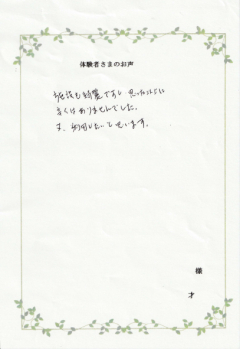 体験者さまのお声
施設も綺麗ですし 思ったよりい
たくはありませんでした。
又、利用したいと思います。
様
才